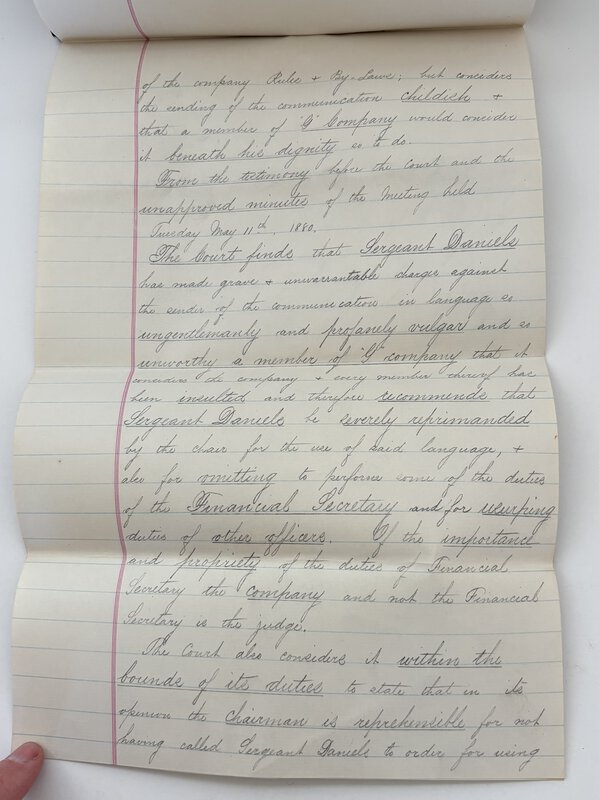 of the company Rules & By-Laws; but considers
the sending of the communication childish &
that a member of "G" Company would consider
it beneath his dignity so to do.
From the testimony before the Court and the
unapproved minutes of the Meeting held
Tuesday May 11th, 1880.
The Court finds that Sergeant Daniels
has made grave & unwarrantable charges against
the sender of the communication in language so
ungentlemanly and profanely vulgar and so
unworthy a member of "G" company that it
considers the company & every member thereof has
been insulted and therefore recommends that
Sergeant Daniels be severely reprimanded
by the chair for the use of said language, &
also for omitting to perform some of the duties
of the Financial Secretary and for usurping
duties of other officers. Of the importance
and propriety of the duties of Financial
Secretary the company and not the Financial
Secretary is the judge.
The Court also considers it within the
bounds of its duties to state that in its
openion the Chairman is reprehensible for not
having called Sergeant Daniels to order for using